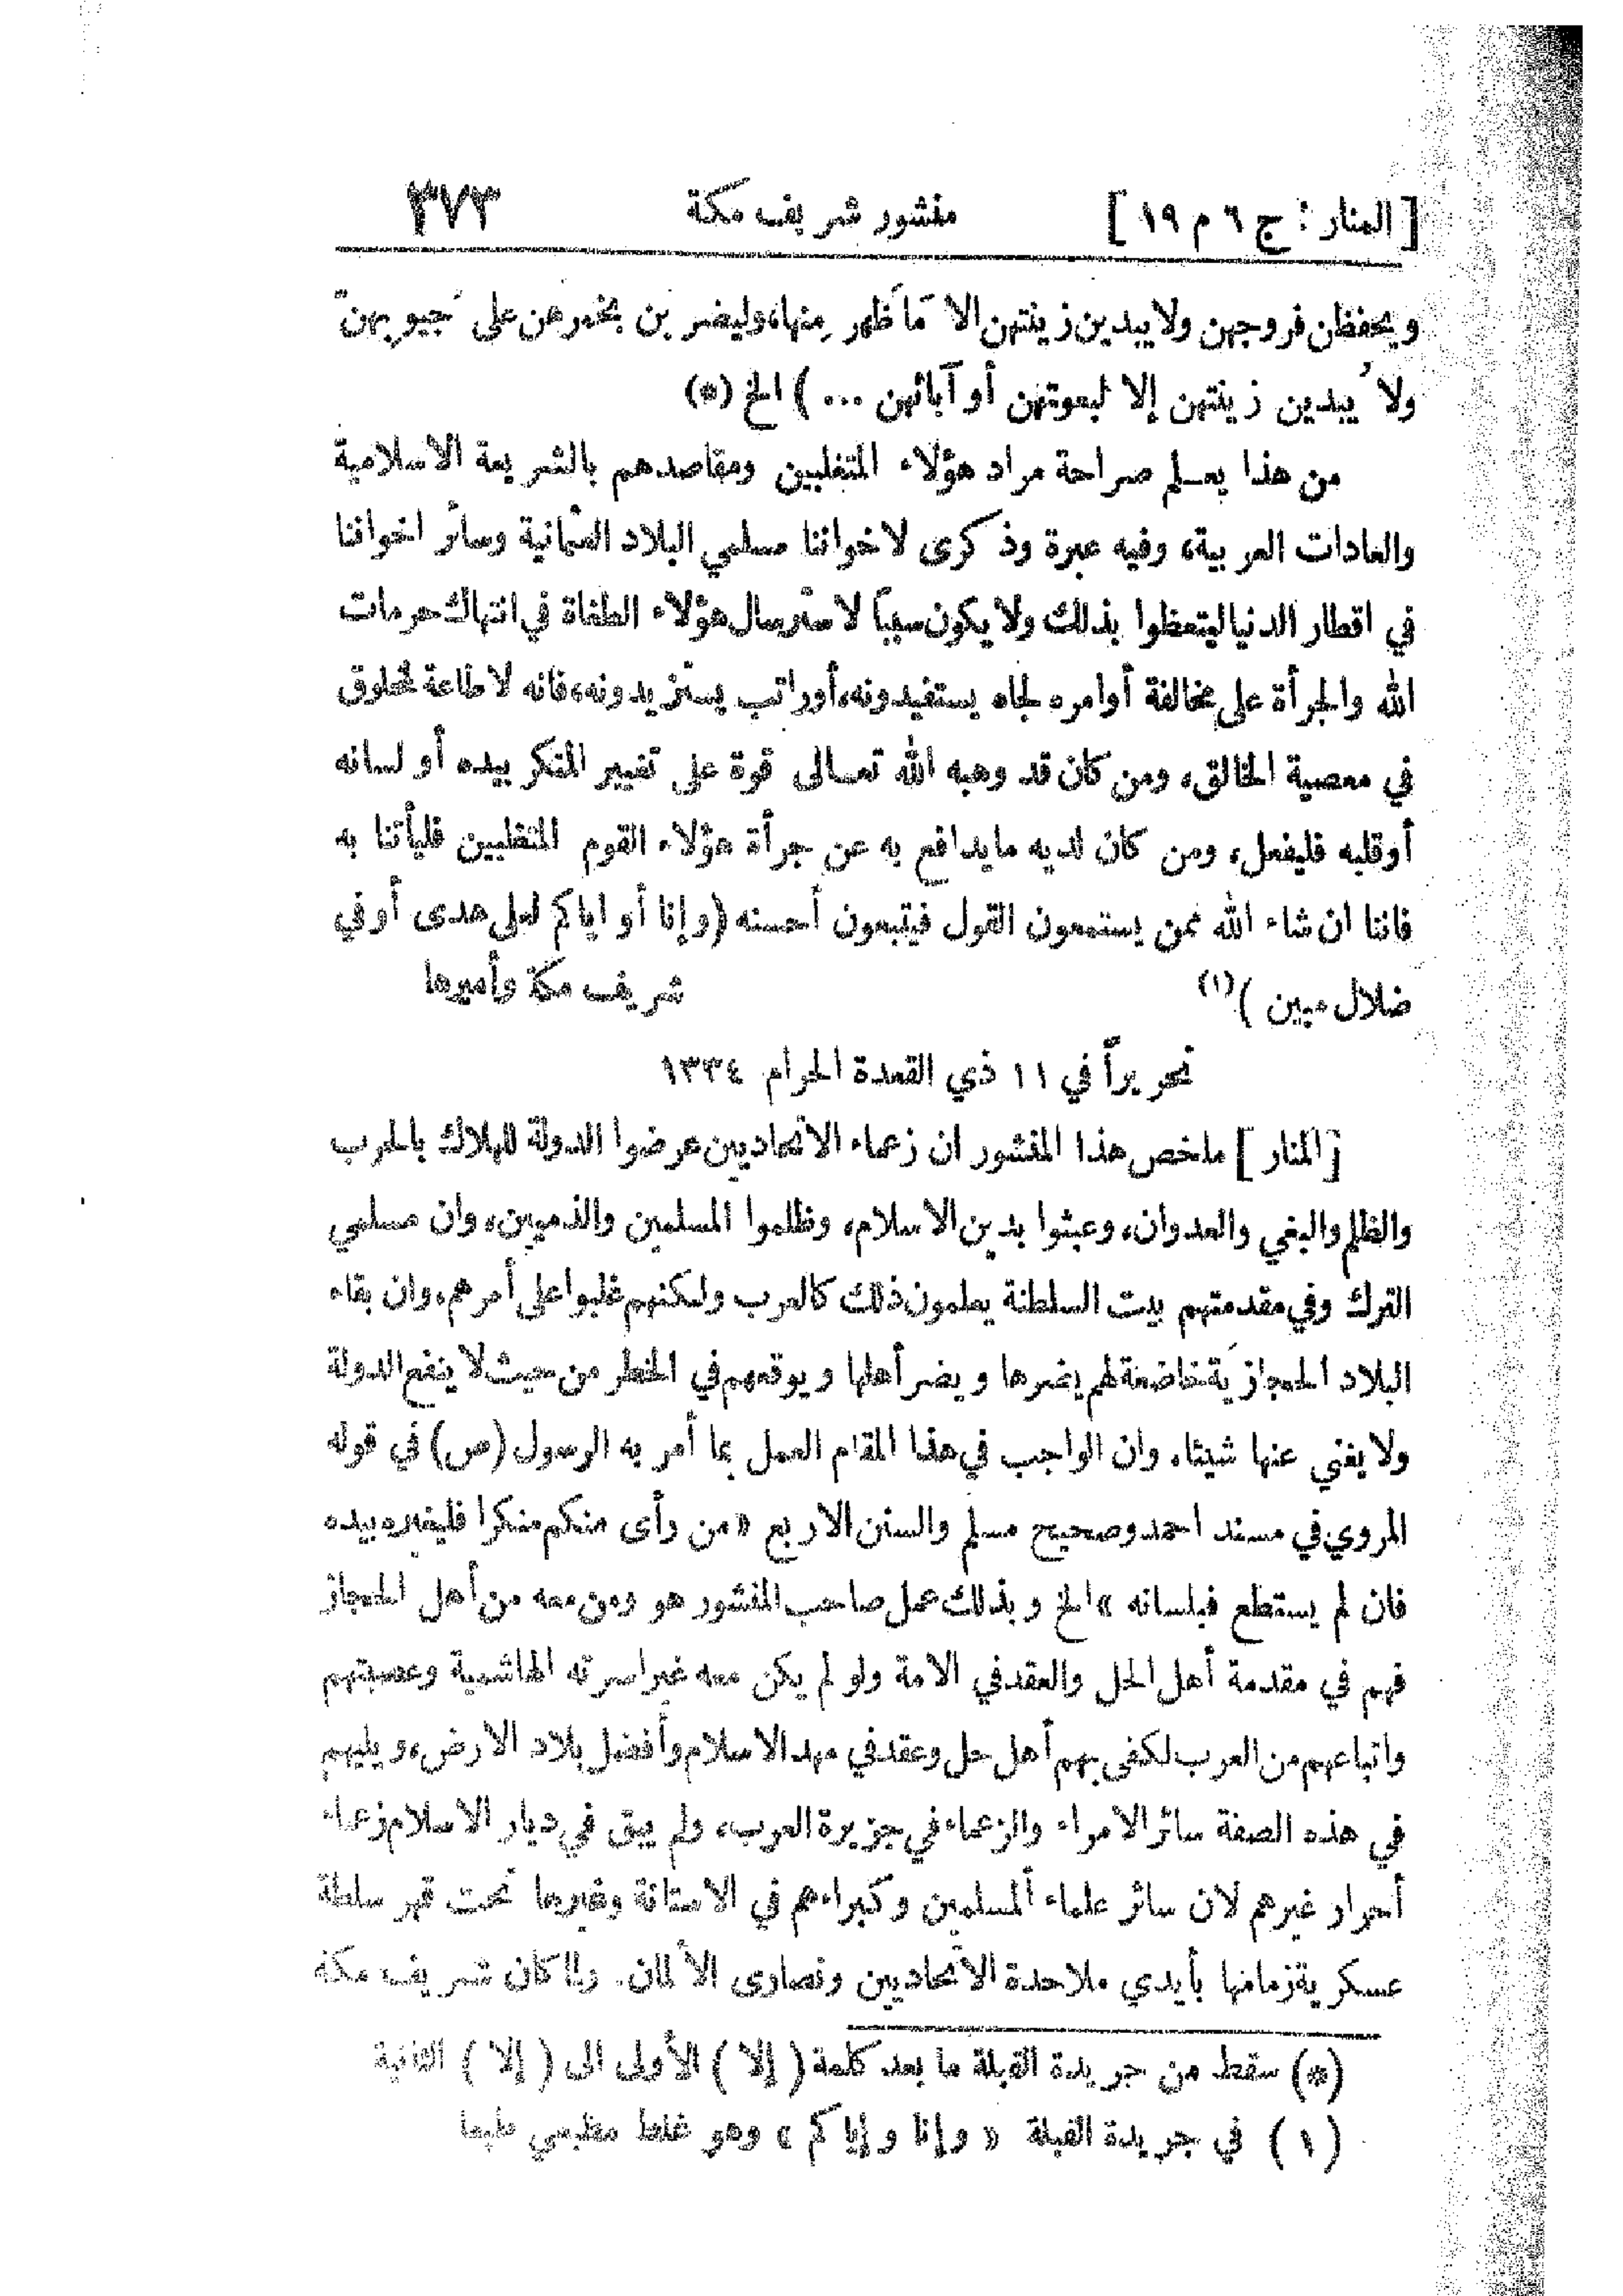 [ المنار : ج ٦ م ١٩ ] منشور شريف مكة ٣٧٣
ويحفظن فروجهن ولا يبدين زينتهن الا مَا ظَهر مِنها، وليضربن بخمرهن على جُيوبِهنّ
ولا يُبدين زينتهن إلا لبعولتهن أو آبائهن ... ) الخ (*)
من هذا يعلم صراحة مراد هؤلاء المتغلبين ومقاصدهم بالشريعة الاسلامية
والعادات العربية، وفيه عبرة وذكرى لاخواننا مسلمي البلاد العثمانية وسائر اخواننا
في اقطار الدنيا ليتعظوا بذلك ولا يكون سبباً لاسترسال هؤلاء الطغاة في انتهاك حرمات
الله والجرأة على مخالفة أوامره لجاه يستفيدونه، أو راتب يستزيدونه، فانه لا طاعة لمخلوق
في معصية الخالق، ومن كان قد وهبه الله تعالى قوة على تغيير المنكر بيده أو لسانه
أو قلبه فليفعل، ومن كان لديه ما يدافع به عن جرأة هؤلاء القوم المتغلبين فليأتنا به
فاننا ان شاء الله ممن يستمعون القول فيتبعون أحسنه (وإنا أو اياكم لعلى هدى أو في
ضلال مبين )(١) شريف مكة وأميرها
تحريراً في ١١ ذي القعدة الحرام ١٣٣٤
[المنار ] ملخص هذا المنشور ان زعماء الاتحاديين عرضوا الدولة للهلاك بالحرب
والظلم والبغي والعدوان، وعبثوا بدين الاسلام، وظلموا المسلمين والذميين، وان مسلمي
الترك وفي مقدمتهم بيت السلطنة يعلمون ذلك كالعرب ولكنهم غلبوا على أمرهم، وان بقاء
البلاد الحجازيَة خاضعة لهم يضرها ويضر أهلها ويوقعهم في الخطر من حيث لا ينفع الدولة
ولا يغني عنها شيئا، وان الواجب في هذا المقام العمل بما أمر به الرسول (ص) في قوله
المروي في مسند احمد وصحيح مسلم والسنن الاربع « من رأى منكم منكرا فليغيره بيده
فان لم يستطع فبلسانه » الخ وبذلك عمل صاحب المنشور هو ومن معه من أهل الحجاز
فهم في مقدمة أهل الحل والعقد في الامة ولو لم يكن معه غير اسرته الهاشمية وعصبتهم
واتباعهم من العرب لكفى بهم أهل حل وعقد في مهد الاسلام وأفضل بلاد الارض، ويليهم
في هذه الصفة سائر الامراء والزعماء في جزيرة العرب، ولم يبق في ديار الاسلام زعماء
أحرار غيرهم لان سائر علماء المسلمين وكبراءهم في الاستانة وغيرها تحت قهر سلطة
عسكرية زمامها بأيدي ملاحدة الاتحاديين ونصارى الألمان. ولما كان شريف مكة
(*) سقط من جريدة القبلة ما بعد كلمة ( إلا ) الأولى الى ( إلا ) الثانية
( ١ ) في جريدة القبلة « وإنا وإياكم » وهو غلط مطبعي